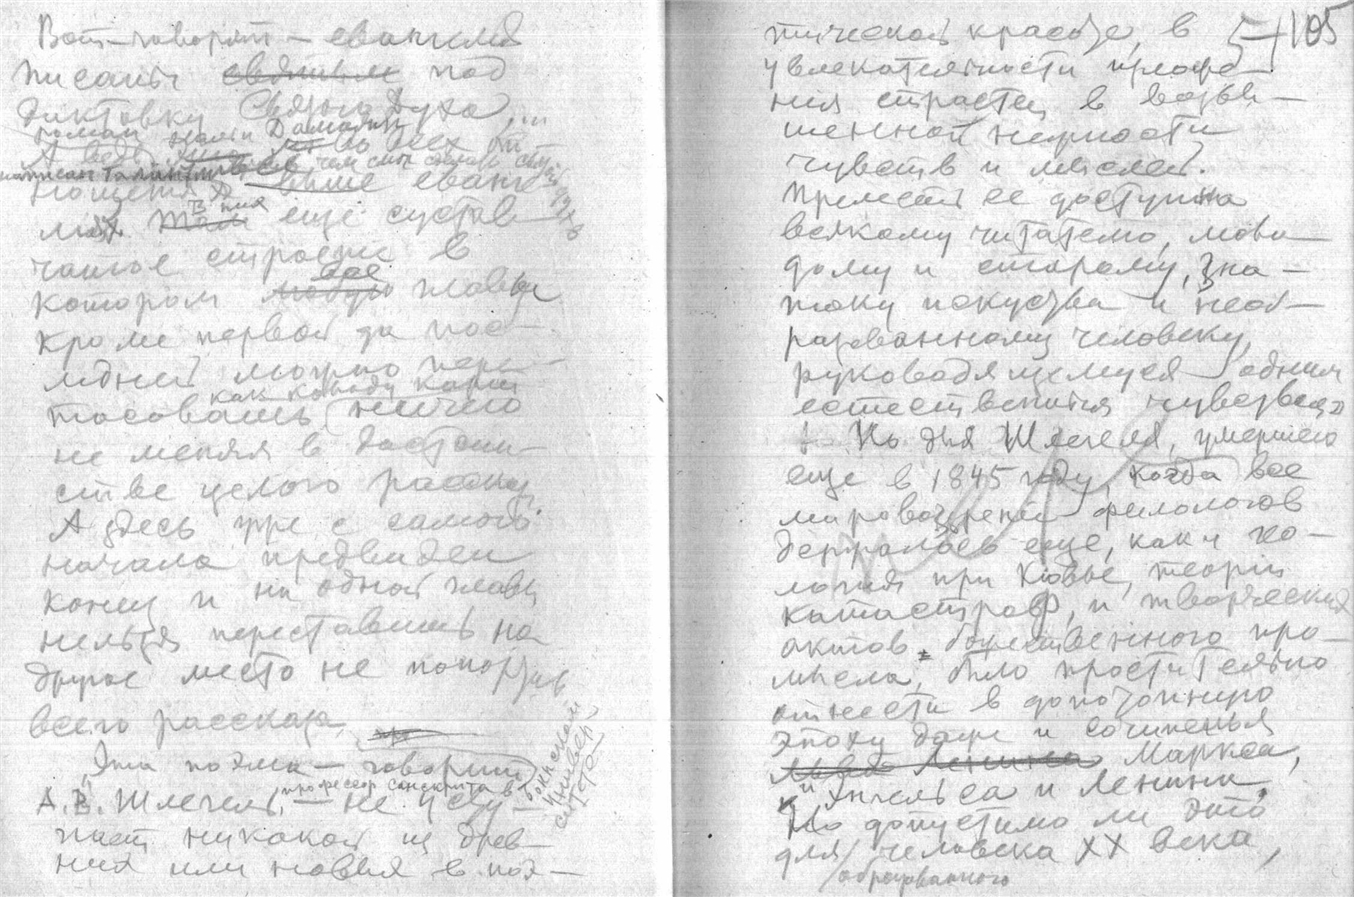 Вот – говорят – евангелия
писаны под
диктовку Святого Духа...
роман Наль и Дамаянти
А ведь во всех от-
написан талантливее чем
ношениях выше еванге-
лий. В них еще сустав-
чатое строение в
котором все главы
кроме первой да пос-
ледней можно пере-
как колоду карт
тасовать ничего
не меняя в достоин-
стве целого рассказ.
А здесь уже с самого
начала предвиден
конец и ни одной главы
нельзя переставить на
другое место не попортив
всего рассказа.
"Эта поэма – говорит
А.В. Шлегель, – не усту-
профессор санскрита в Боннском универ-
ситете
пает никакой из древ-
них или новых в поэ-
5 105
тической красоте, в
увлекательности
ния страстей, в возвы-
шенной нежности
чувств и мыслей.
Прелесть ее доступна
всякому читателю, моло-
дому и старому, зна-
току искусства и необ-
разованному человеку,
руководящемуся одним
естественным чувством
Но для Шлегеля, умершего
еще в 1845 году, когда все
мировоззрение филологов
держалось еще, как и
логия при Кювье, теории
катастроф, и творческих
актов божественного про-
мысла, было простительно
отнести в допотопную
эпоху даже и сочиненья
Маркса,
и Энгельса и Ленина.
Но допустимо ли это
для человека XX века,
образованного